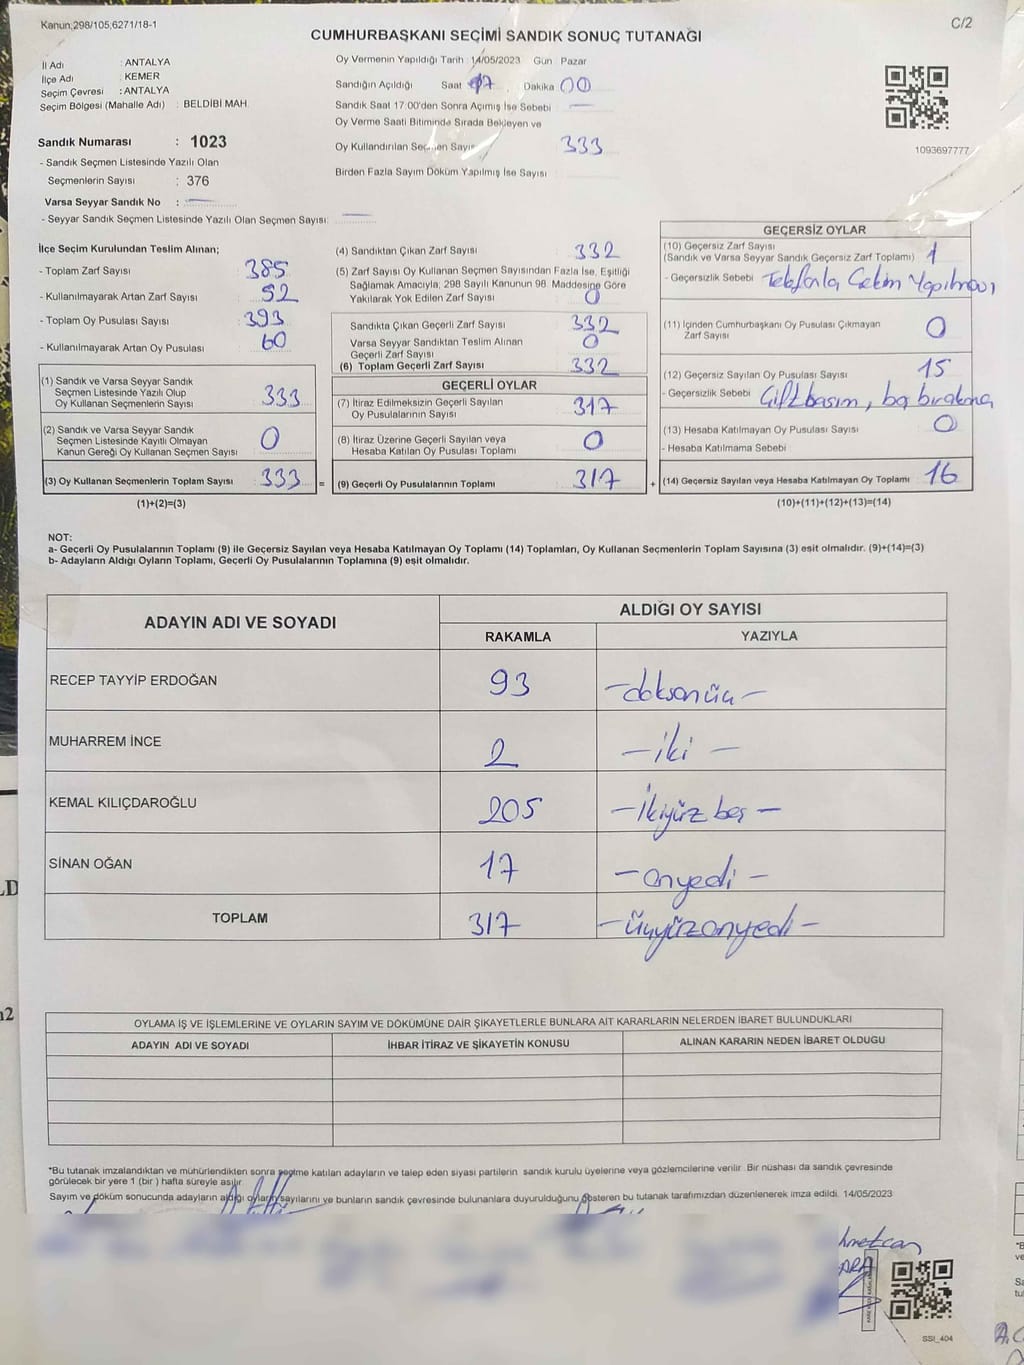 Kanun;298/105,6271/18-1
C/2
CUMHURBAŞKANI SEÇİMİ SANDIK SONUÇ TUTANAĞI
İl Adı : ANTALYA
İlçe Adı : KEMER
Seçim Çevresi : ANTALYA
Seçim Bölgesi (Mahalle Adı) : BELDİBİ MAH.
Oy Vermenin Yapıldığı Tarih : 14/05/2023 Gün Pazar
Sandığın Açıldığı Saat 17 Dakika 00
Sandık Saat 17:00'den Sonra Açımış İse Sebebi
Oy Verme Saati Bitiminde Sırada Bekleyen ve
Oy Kullandırılan Seçmen Sayısı 333
Birden Fazla Sayım Döküm Yapılmış İse Sayısı
1093697777
Sandık Numarası : 1023
- Sandık Seçmen Listesinde Yazılı Olan
Seçmenlerin Sayısı : 376
Varsa Seyyar Sandık No :
- Seyyar Sandık Seçmen Listesinde Yazılı Olan Seçmen Sayısı:
İlçe Seçim Kurulundan Teslim Alınan;
- Toplam Zarf Sayısı 385
- Kullanılmayarak Artan Zarf Sayısı 52
- Toplam Oy Pusulası Sayısı 393
- Kullanılmayarak Artan Oy Pusulası 60
(1) Sandık ve Varsa Seyyar Sandık
Seçmen Listesinde Yazılı Olup
Oy Kullanan Seçmenlerin Sayısı 333
(2) Sandık ve Varsa Seyyar Sandık
Seçmen Listesinde Kayıtlı Olmayan
Kanun Gereği Oy Kullanan Seçmen Sayısı 0
(3) Oy Kullanan Seçmenlerin Toplam Sayısı 333 =
(1)+(2)=(3)
(4) Sandıktan Çıkan Zarf Sayısı 332
(5) Zarf Sayısı Oy Kullanan Seçmen Sayısından Fazla İse, Eşitliği
Sağlamak Amacıyla, 298 Sayılı Kanunun 98. Maddesine Göre
Yakılarak Yok Edilen Zarf Sayısı 0
Sandıkta Çıkan Geçerli Zarf Sayısı 332
Varsa Seyyar Sandıktan Teslim Alınan
Geçerli Zarf Sayısı 0
(6) Toplam Geçerli Zarf Sayısı 332
GEÇERLİ OYLAR
(7) İtiraz Edilmeksizin Geçerli Sayılan
Oy Pusulalarının Sayısı 317
(8) İtiraz Üzerine Geçerli Sayılan veya
Hesaba Katılan Oy Pusulası Toplamı 0
(9) Geçerli Oy Pusulalarının Toplamı 317 +
GEÇERSİZ OYLAR
(10) Geçersiz Zarf Sayısı
(Sandık ve Varsa Seyyar Sandık Geçersiz Zarf Toplamı) 1
- Geçersizlik Sebebi Telefonla Çekim Yapılması
(11) İçinden Cumhurbaşkanı Oy Pusulası Çıkmayan
Zarf Sayısı 0
(12) Geçersiz Sayılan Oy Pusulası Sayısı 15
- Geçersizlik Sebebi Çift basım, boş bırakma
(13) Hesaba Katılmayan Oy Pusulası Sayısı 0
- Hesaba Katılmama Sebebi
(14) Geçersiz Sayılan veya Hesaba Katılmayan Oy Toplamı 16
(10)+(11)+(12)+(13)=(14)
NOT:
a- Geçerli Oy Pusulalarının Toplamı (9) ile Geçersiz Sayılan veya Hesaba Katılmayan Oy Toplamı (14) Toplamları, Oy Kullanan Seçmenlerin Toplam Sayısına (3) eşit olmalıdır. (9)+(14)=(3)
b- Adayların Aldığı Oyların Toplamı, Geçerli Oy Pusulalarının Toplamına (9) eşit olmalıdır.
ADAYIN ADI VE SOYADI
ALDIĞI OY SAYISI
RAKAMLA YAZIYLA
RECEP TAYYİP ERDOĞAN 93 - doksanüç -
MUHARREM İNCE 2 - iki -
KEMAL KILIÇDAROĞLU 205 - İkiyüz beş -
SİNAN OĞAN 17 - onyedi -
TOPLAM 317 - üçyüzonyedi -
OYLAMA İŞ VE İŞLEMLERİNE VE OYLARIN SAYIM VE DÖKÜMÜNE DAİR ŞİKAYETLERLE BUNLARA AİT KARARLARIN NELERDEN İBARET BULUNDUKLARI
ADAYIN ADI VE SOYADI İHBAR İTİRAZ VE ŞİKAYETİN KONUSU ALINAN KARARIN NEDEN İBARET OLDUĞU
*Bu tutanak imzalandıktan ve mühürlendikten sonra seçime katılan adayların ve talep eden siyasi partilerin sandık kurulu üyelerine veya gözlemcilerine verilir. Bir nüshası da sandık çevresinde
görülecek bir yere 1 (bir ) hafta süreyle asılır.
Sayım ve döküm sonucunda adayların aldığı oyların sayılarını ve bunların sandık çevresinde bulunanlara duyurulduğunu gösteren bu tutanak tarafımızdan düzenlenerek imza edildi. 14/05/2023
SSI_404